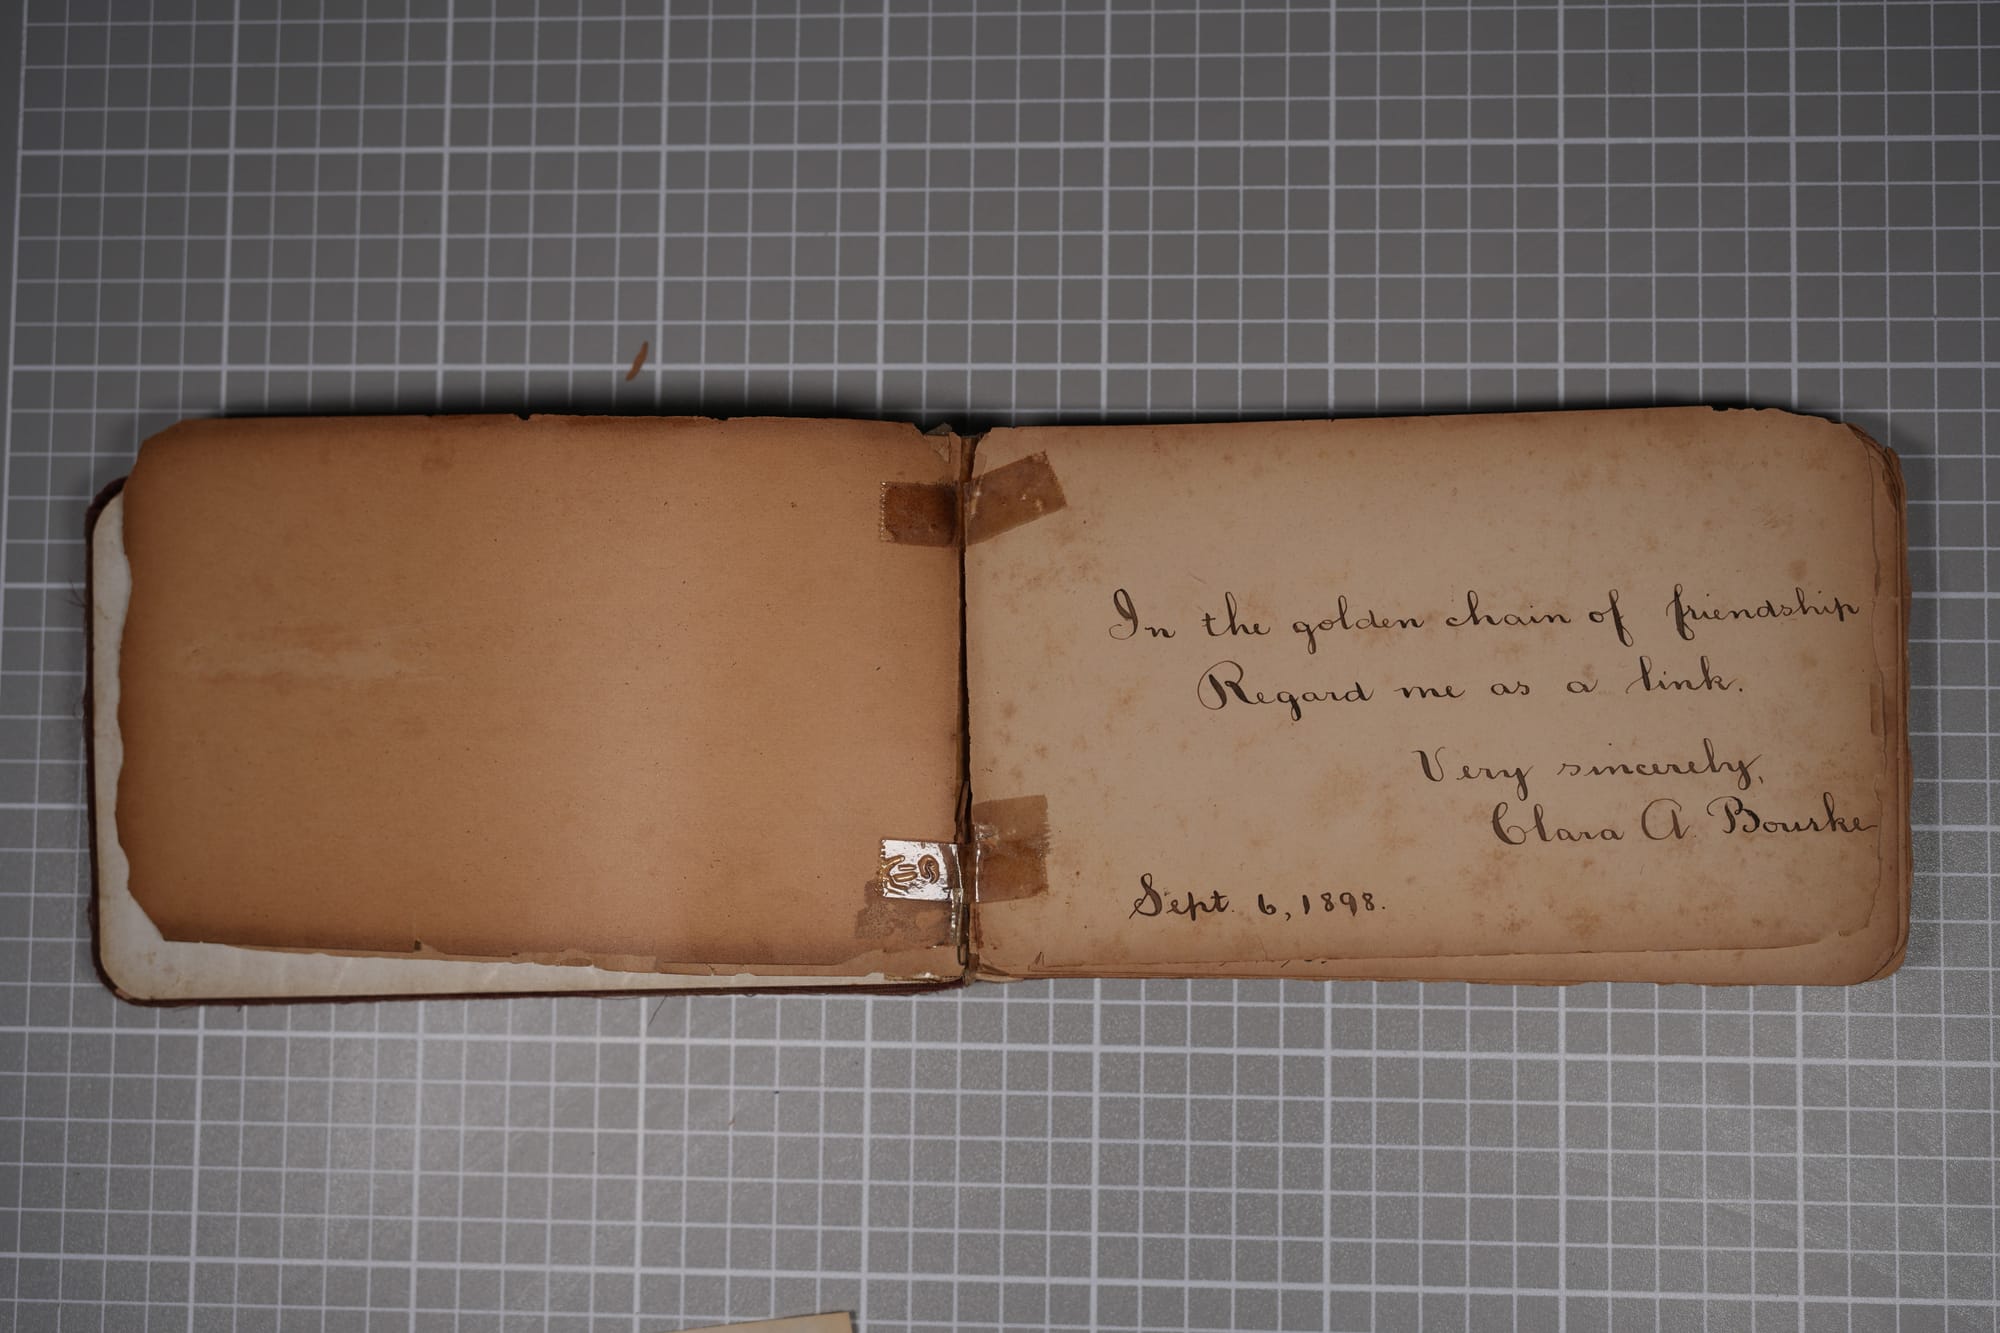 In the golden chain of friendship
Regard me as a link.
Very sincerely,
Clara A. Bourke
Sept. 6, 1898.